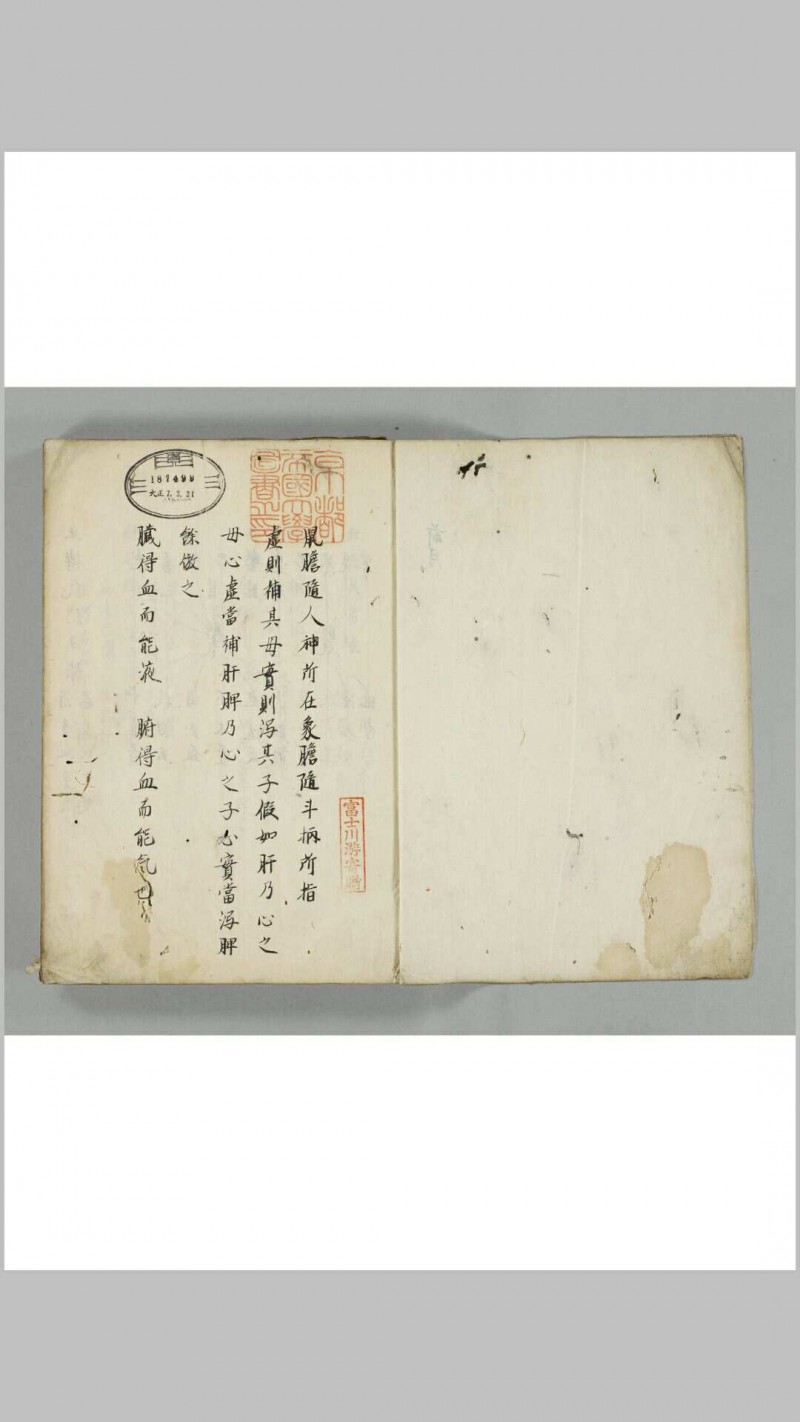 鼠膽隨人神所在象膽隨斗柄所指
虛則補其母實則瀉其子假如肝乃心之
母心虛當補肝脾乃心之子心實當瀉脾
餘倣之
臟得血而能液　腑得血而能氣也
京都
帝國大學
圖書之印
富士川游寄贈
187499
大正7.3.31